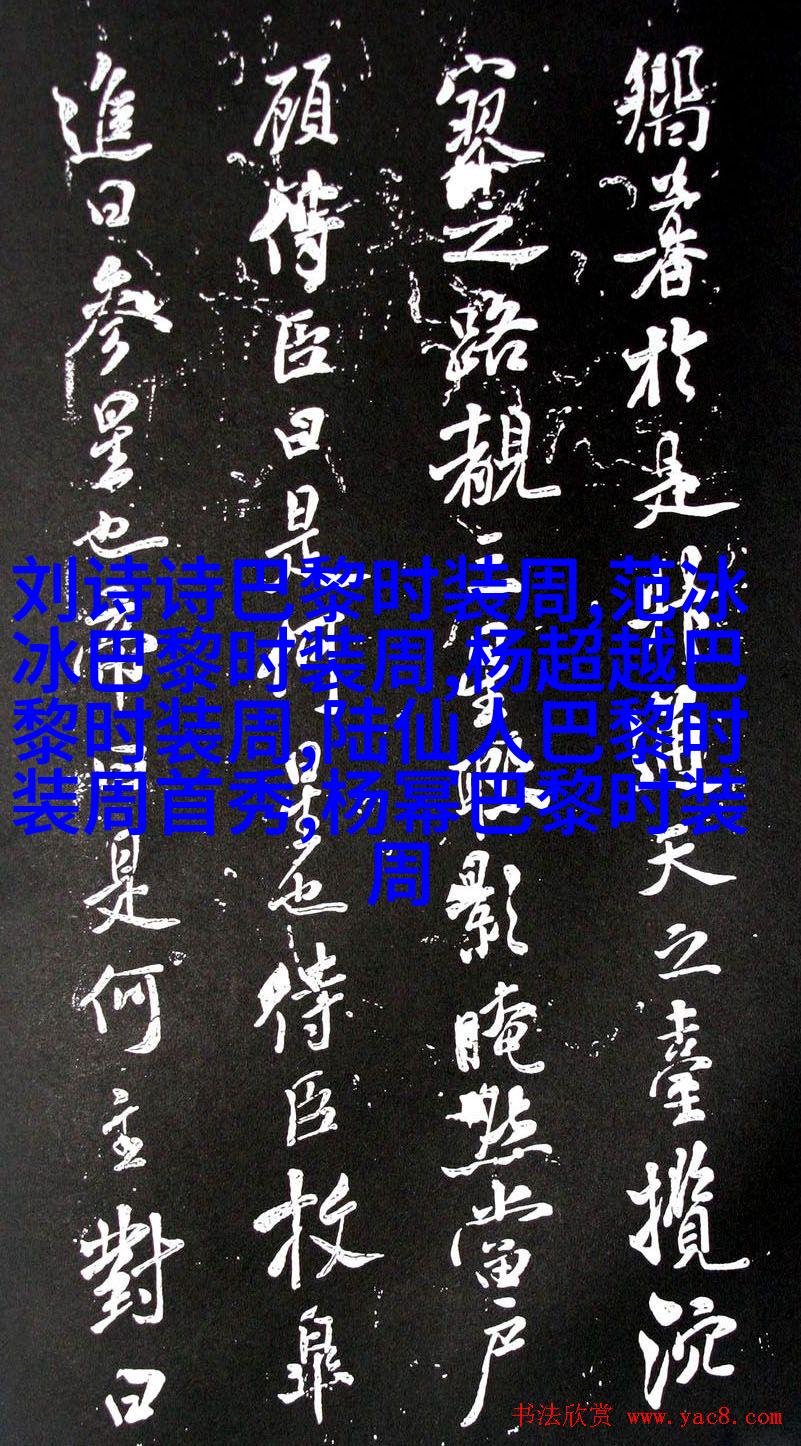 於是通天之臺攬沆
寥之路覩三星影晻然當戶
顧侍臣曰是何星也侍臣枚皋
進曰參星也帝曰是何主對曰
刘诗诗巴黎时装周,范冰
冰巴黎时装周,杨超越巴
黎时装周,陆仙人巴黎时
装周首秀,杨幂巴黎时装
周
书法欣赏 www.yac8.com